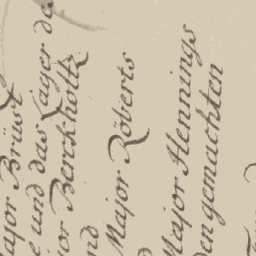 ajor Brüst
e und das Lager da
jor Berckholtz
nd
Major Röberts
d
Major Hennings
den gemachten